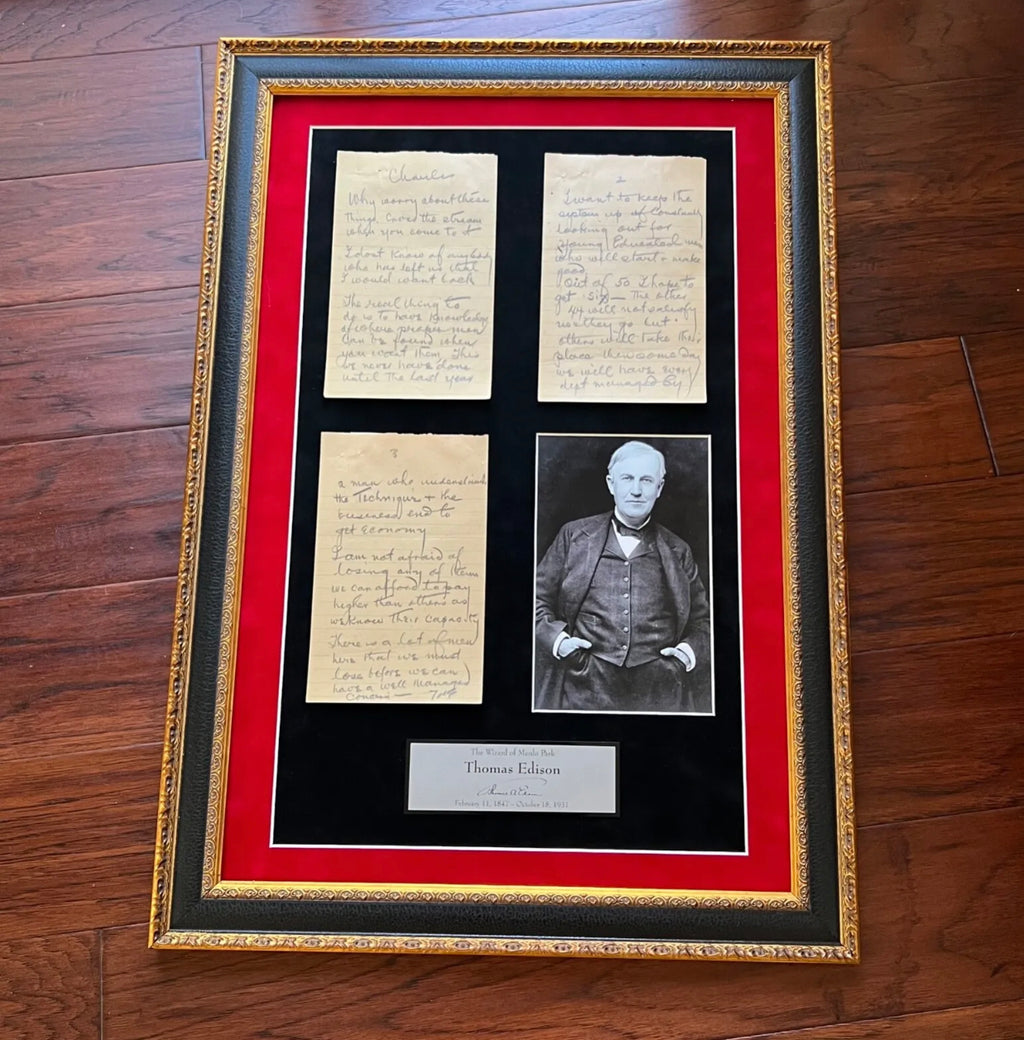 Charles
Why worry about these
things. Cross the stream
when you come to it
I dont know of anybody
who has left us that
I would want back
The real thing to
do is to have Knowledge
of where proper men
Can be found when
you want them. This
we never have done
until the last year
2
I want to keep the
system up of Constantly
looking out for
young Educated men
who will start & make
good
Out of 50 I hope to
get six — The other
44 will not satisfy
us they go but
others will take their
place then some day
we will have every
dept managed by
3
a man who understands
the Technique & the
business end to
get economy
I am not afraid of
losing any of them
we can afford to pay
higher than others as
we know their capacity
There is a lot of men
here that we must
lose before we can
have a well managed
Concern —
The Wizard of Menlo Park
Thomas Edison
Thomas A Edison
February 11, 1847 - October 18, 1931